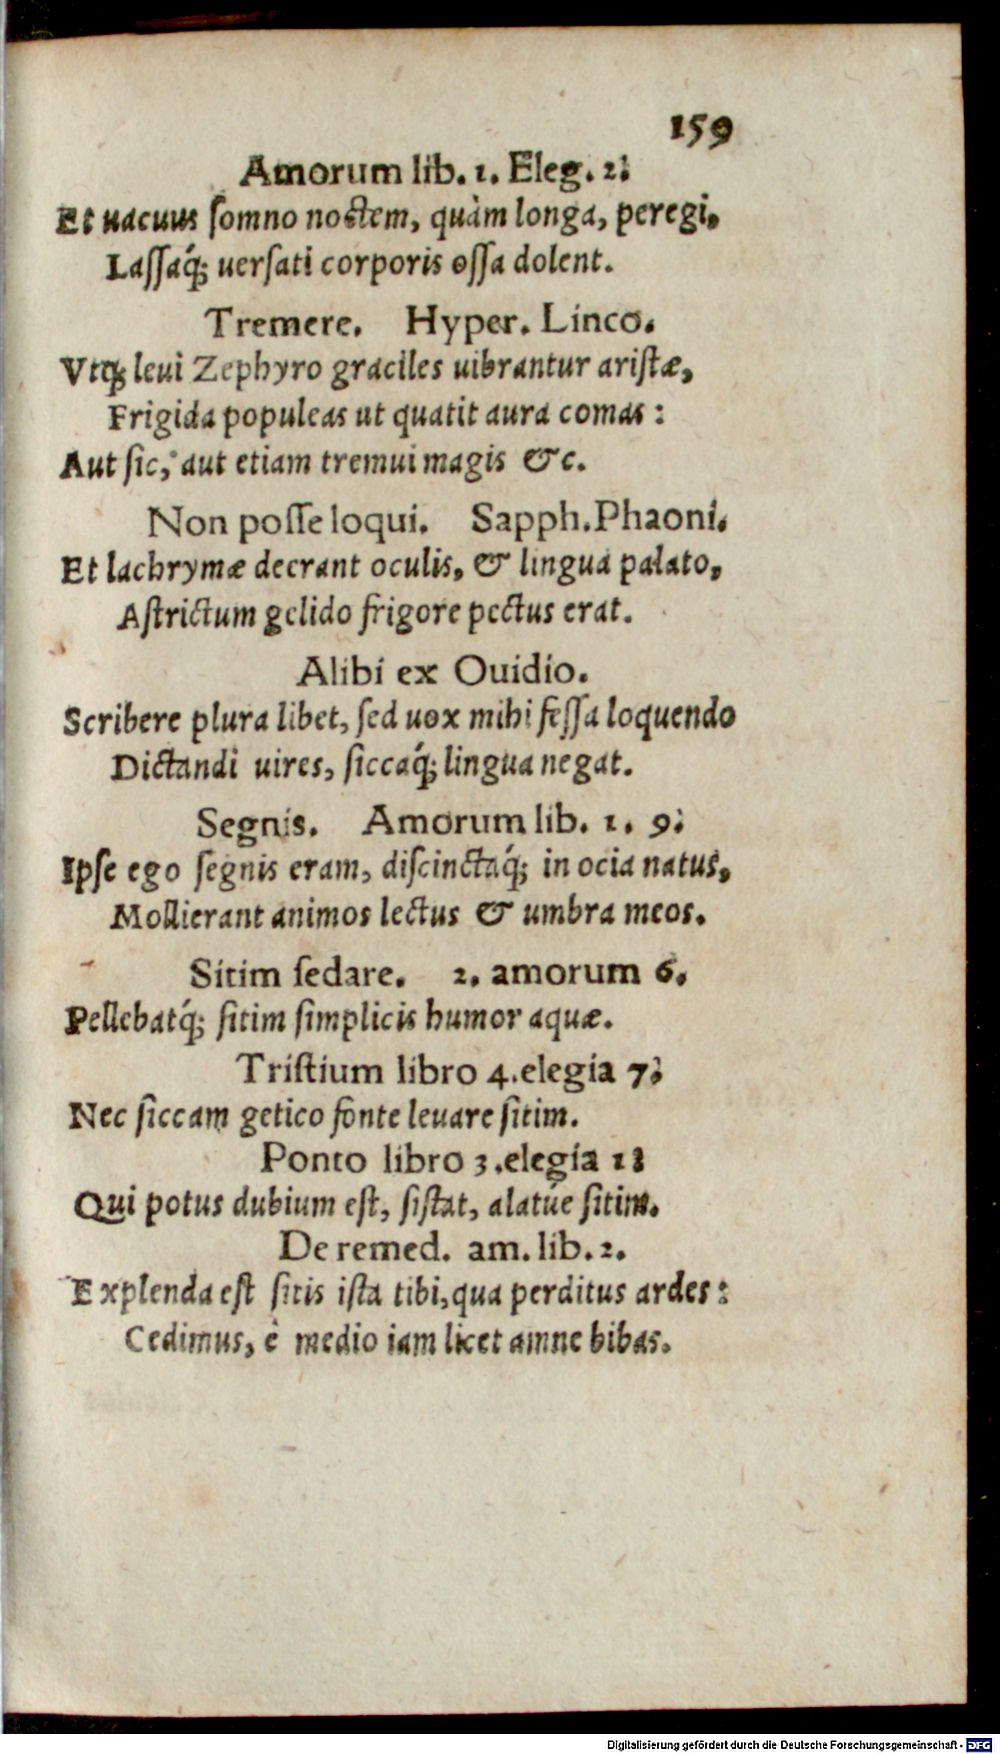 159
Amorum lib. 1. Eleg. 2.
Et uacuus ſomno noctem, quàm longa, peregi.
Laſſaq́; uerſati corporis oſſa dolent.
Tremere. Hyper. Linco.
Vtq; leui Zephyro graciles uibrantur ariſtæ,
Frigida populeas ut quatit aura comas:
Aut ſic, aut etiam tremui magis &c.
Non poſſe loqui. Sapph. Phaoni.
Et lachrymæ decrant oculis, & lingua palato,
Aſtrictum gelido frigore pectus erat.
Alibi ex Ouidio.
Scribere plura libet, ſed uox mihi feſſa loquendo
Dictandi uires, ſiccaq́; lingua negat.
Segnis. Amorum lib. 1. 9.
Ipſe ego ſegnis eram, diſcinctaq́; in ocia natus,
Mollierant animos lectus & umbra meos.
Sitim ſedare. 2. amorum 6.
Pellebatq́; ſitim ſimplicis humor aquæ.
Triſtium libro 4. elegia 7.
Nec ſiccam getico fonte leuare ſitim.
Ponto libro 3. elegia 1.
Qui potus dubium eſt, ſiſtat, alatúe ſitim.
De remed. am. lib. 2.
Explenda eſt ſitis iſta tibi, qua perditus ardes:
Cedimus, è medio iam licet amne bibas.
Digitalisierung gefördert durch die Deutsche Forschungsgemeinschaft - DFG